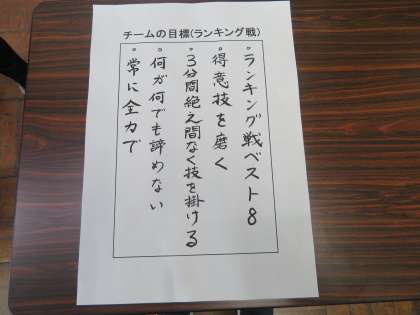 チームの目標(ランキング戦)
。ランキング戦ベスト8
。得意技を磨く
。3分間絶え間なく技を掛ける
。何が何でも諦めない
。常に全力で